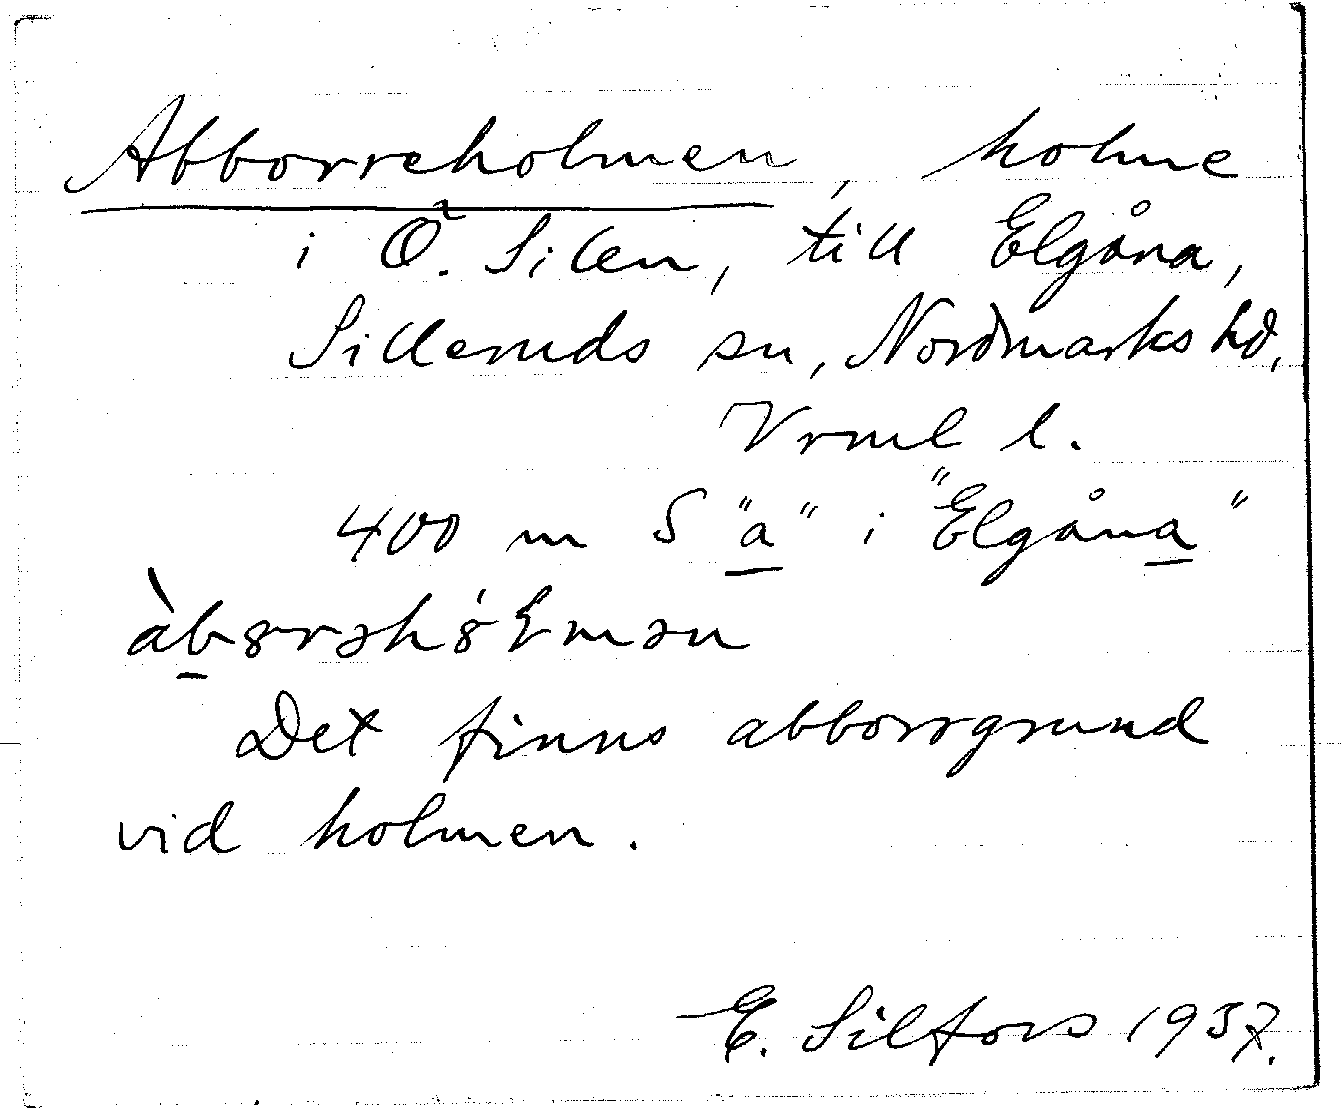 Abborreholmen, holme
i Ö. Silen, till Elgåna,
Silleruds sn, Nordmarks hd,
Vrml l.
400 m S "a" i "Elgåna"
Det finns abborrgrund
vid holmen.
E. Silfors 1937.